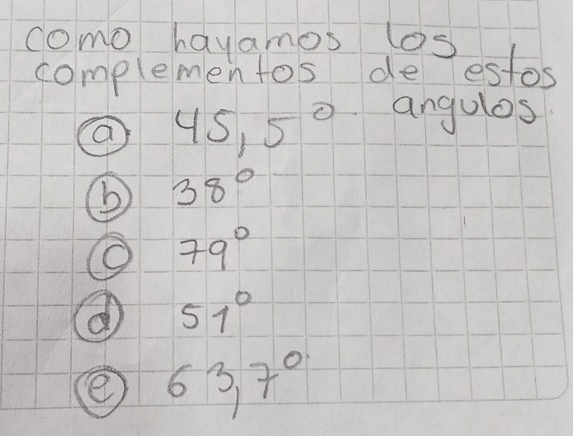 como hayamos los
complementos de estos
angulos.
a 45,5°
b 38°
c 79°
d 51°
e 63,7°